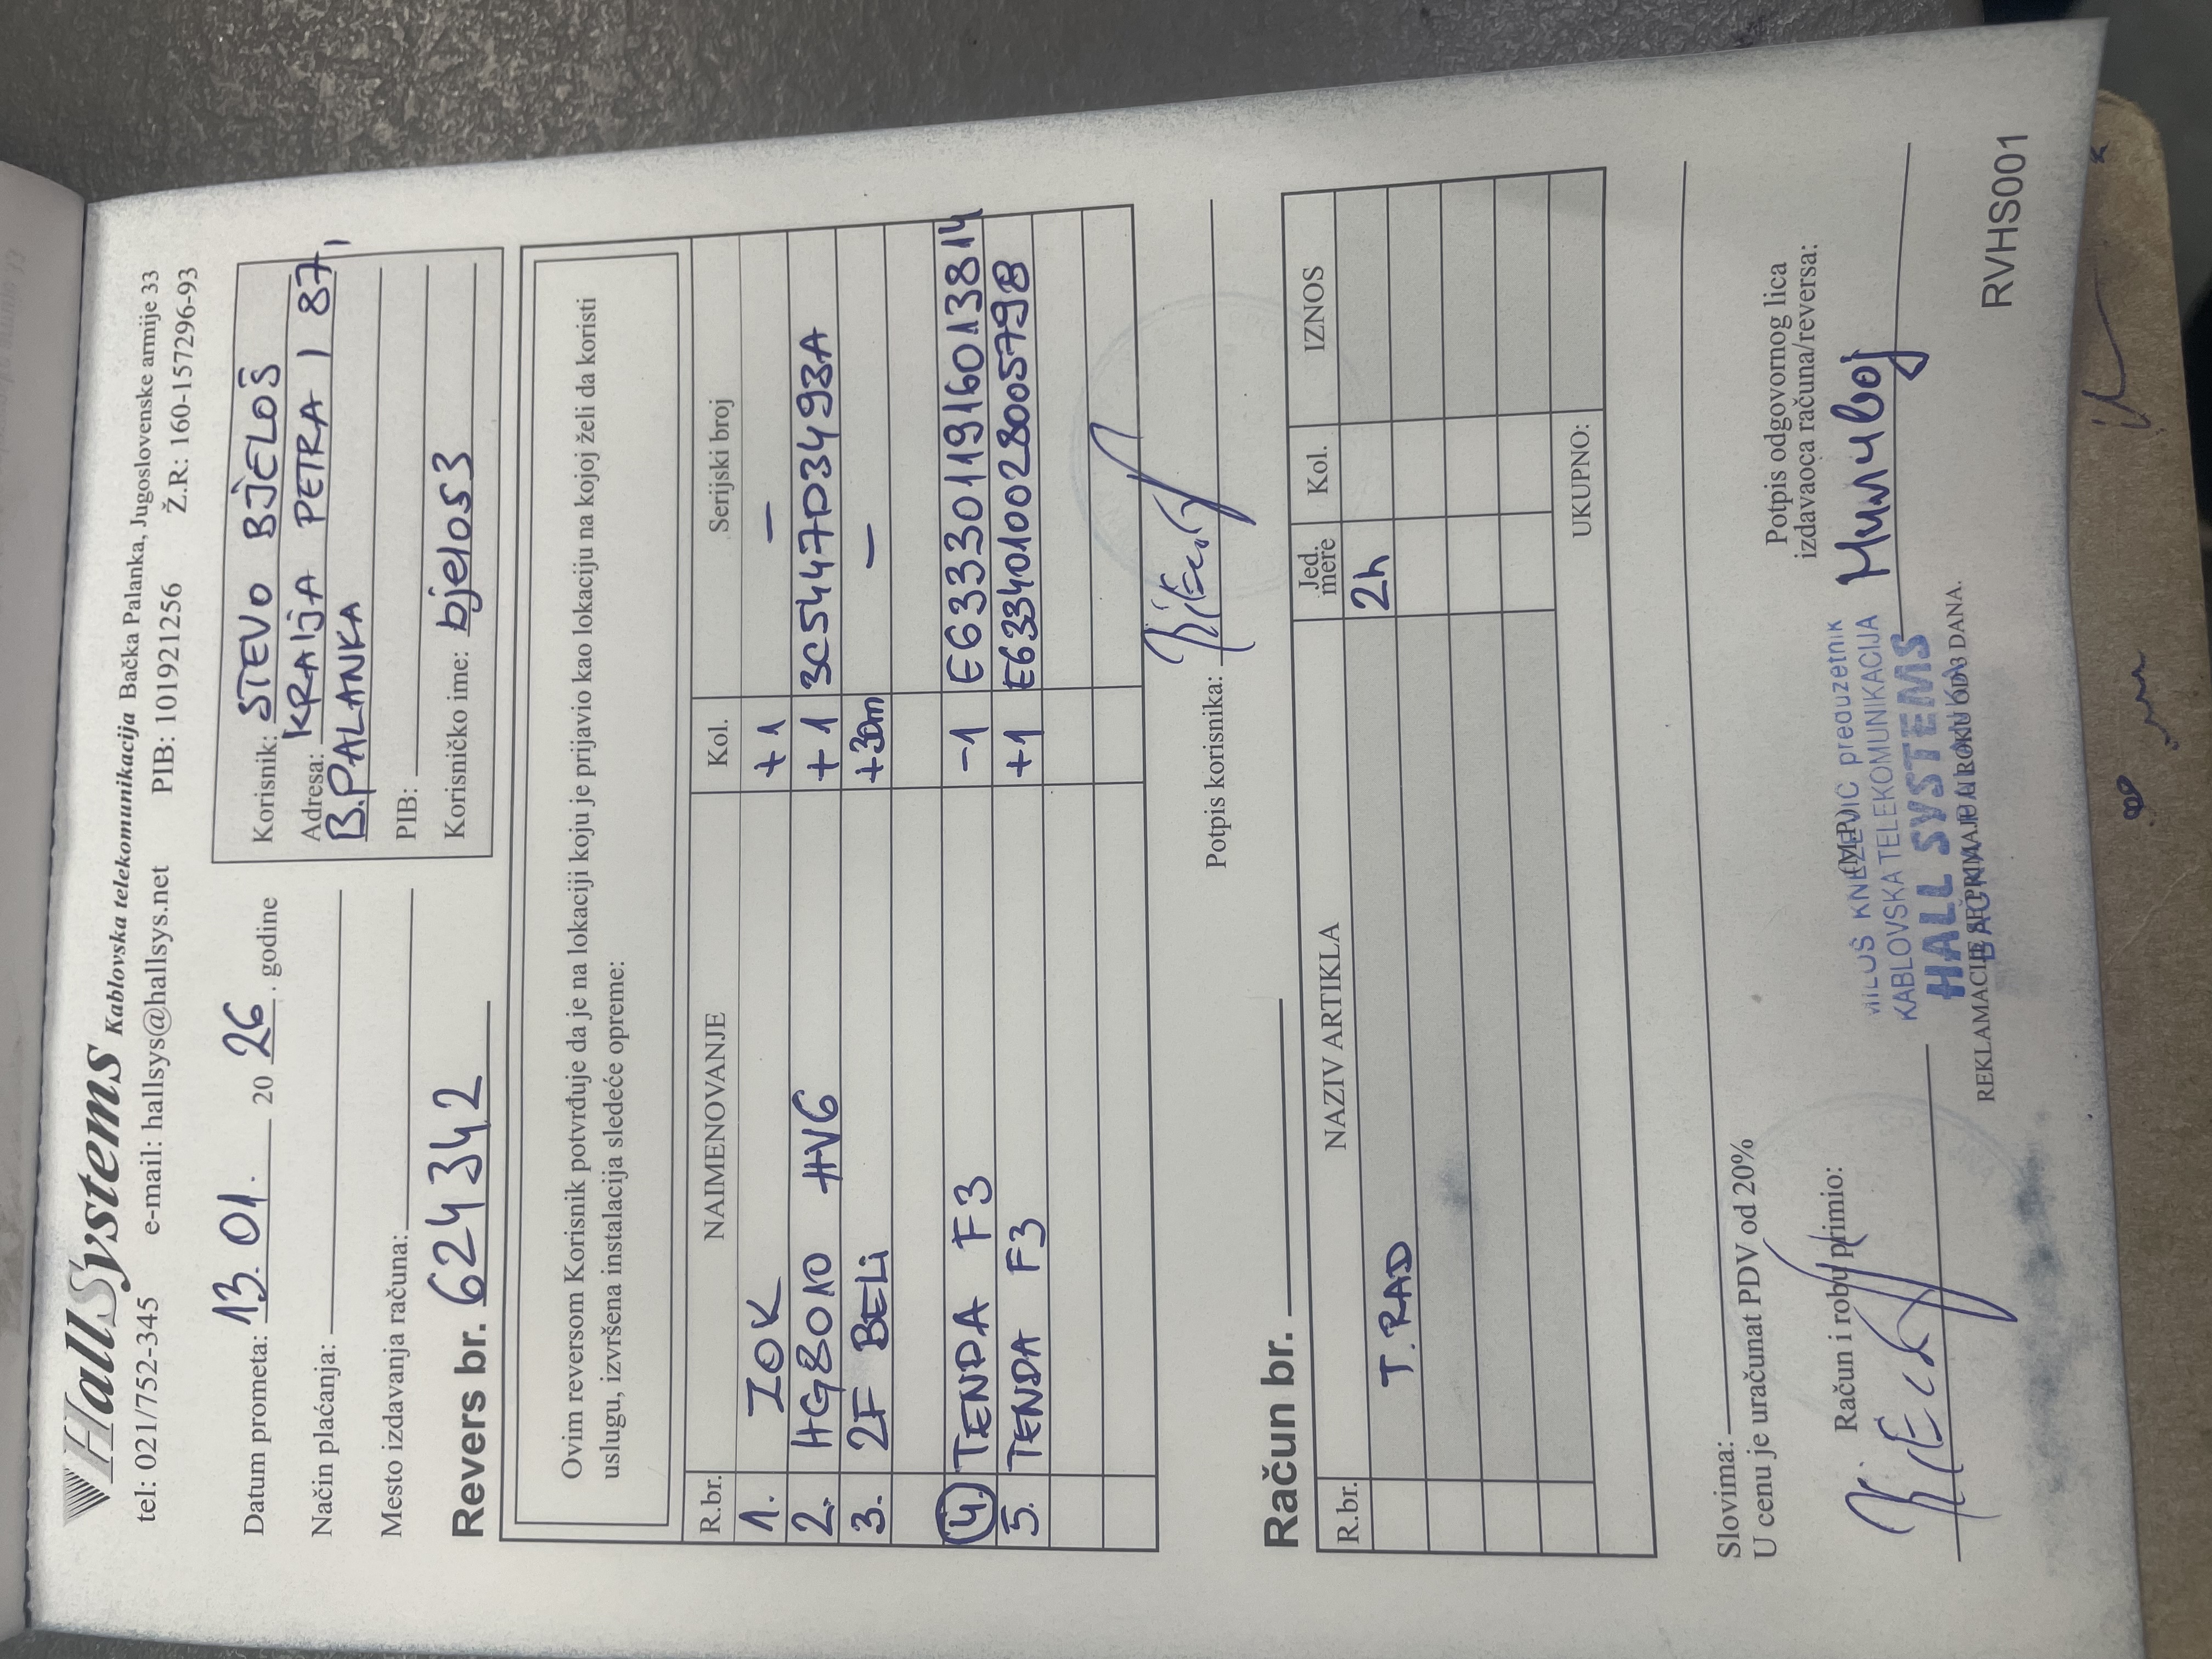 HallSystems Kablovska telekomunikacija Bačka Palanka, Jugoslovenske armije 33
tel: 021/752-345 e-mail: hallsys@hallsys.net PIB: 101921256 Ž.R: 160-157296-93
Datum prometa: 13.01. 2026. godine
Način plaćanja:
Mesto izdavanja računa:
Revers br. 624342
Korisnik: STEVO BJELOŠ
Adresa: KRALJA PETRA I 87,
B.PALANKA
PIB:
Korisničko ime: bjelos3
Ovim reversom Korisnik potvrđuje da je na lokaciji koju je prijavio kao lokaciju na kojoj želi da koristi
uslugu, izvršena instalacija sledeće opreme:
R.br. NAIMENOVANJE Kol. Serijski broj
1. ZOK +1 –
2. HG8010 HV6 +1 3C5447D3493A
3. 2F BELI +30m –
4. TENDA F3 -1 E6333011916013814
5. TENDA F3 +1 E6334010028005798
Potpis korisnika:
Račun br.
R.br. NAZIV ARTIKLA Jed. mere Kol. IZNOS
T.RAD 2h
UKUPNO:
Slovima:
U cenu je uračunat PDV od 20%
Račun i robu primio:
Potpis odgovornog lica
izdavaoca računa/reversa:
(M.P.)
Миливој
MILOŠ KNEŽEVIĆ preduzetnik
KABLOVSKA TELEKOMUNIKACIJA
HALL SYSTEMS
BAČKA PALANKA
REKLAMACIJE SE PRIMAJU U ROKU OD 3 DANA.
RVHS001